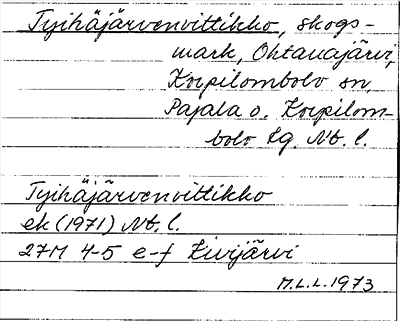 Tyihäjärvenvittikko, skogs-
mark, Ohtanajärvi,
Korpilombolo sn,
Pajala o. Korpilom-
bolo tg. Nb. l.
Tyihäjärvenvittikko
ek (1971) Nb. l.
27M 4-5 e-f Kivijärvi
M.L.L. 1973